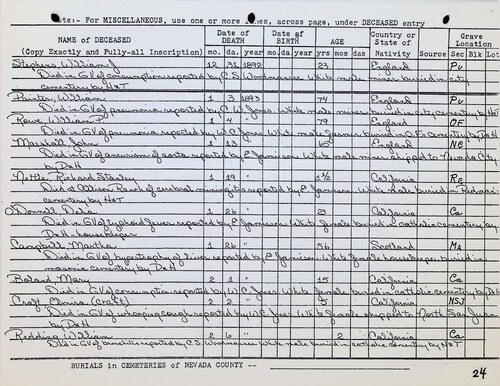 Note:- For MISCELLANEOUS, use one or more lines, across page, under DECEASED entry
NAME OF DECEASED Date of DEATH Date of BIRTH AGE Country or State of Nativity Source Grave Location
(Copy Exactly and Fully-all Inscription) mo. da. year mo. da. year yrs mos das Sec Blk Lot
Stephens, William J 12 31 1892 23 England Pv
Died in GV of consumption reported by C.S. Woodmansee White male miner buried in city
cementery by H&T
Painter, William 1 3 1893 74 England Pv
Died in GV of pneumonia reported by C.W. Jones White male miner buried in city cementery by H&T
Rowe, William P 1 4 " 79 England OF
Died in GV of pneumonia reported by W.C. Jones White male farmer buried in O.F.s cementery by D&H
Marshall John 1 13 " 65 England NC
Died in GV of aneurism of aorta reported by E Jamison White male miner shipped to Nevada City
by D&H
Nettle Richard Stanley 1 19 " 1½ California RE
Died at Allison Ranch of cerebral reported by E Jamison White male buried in
cementery by H&T
O'Donnell Delia 1 26 " 23 California Ca
Died in GV of typhoid fever reported by E Jamieson White female buried in catholic cementery by
D&H - housekeeper
Campbell Martha 1 26 " 56 Scotland MA
Died in GV of hypertrophy of liver reported by E Jamison White female housekeeper buried in
masonic cementery by D&H
Boland Mary 2 1 " 15 California Ca
Died in GV of consumption reported by W.C. Jones White female buried in catholic cementery by D&H
Croft Elmira (Craft) 2 2 " 5 California NSJ
Died in GV of whooping cough reported by W.C. Jones White female shipped to North San Juan
by D&H
Redding William 2 6 " 2 California Ca
Died in GV of reported by C.S. Woodmansee White male buried in catholic cementery by H&T
BURIALS in CEMETERIES of NEVADA COUNTY --
24